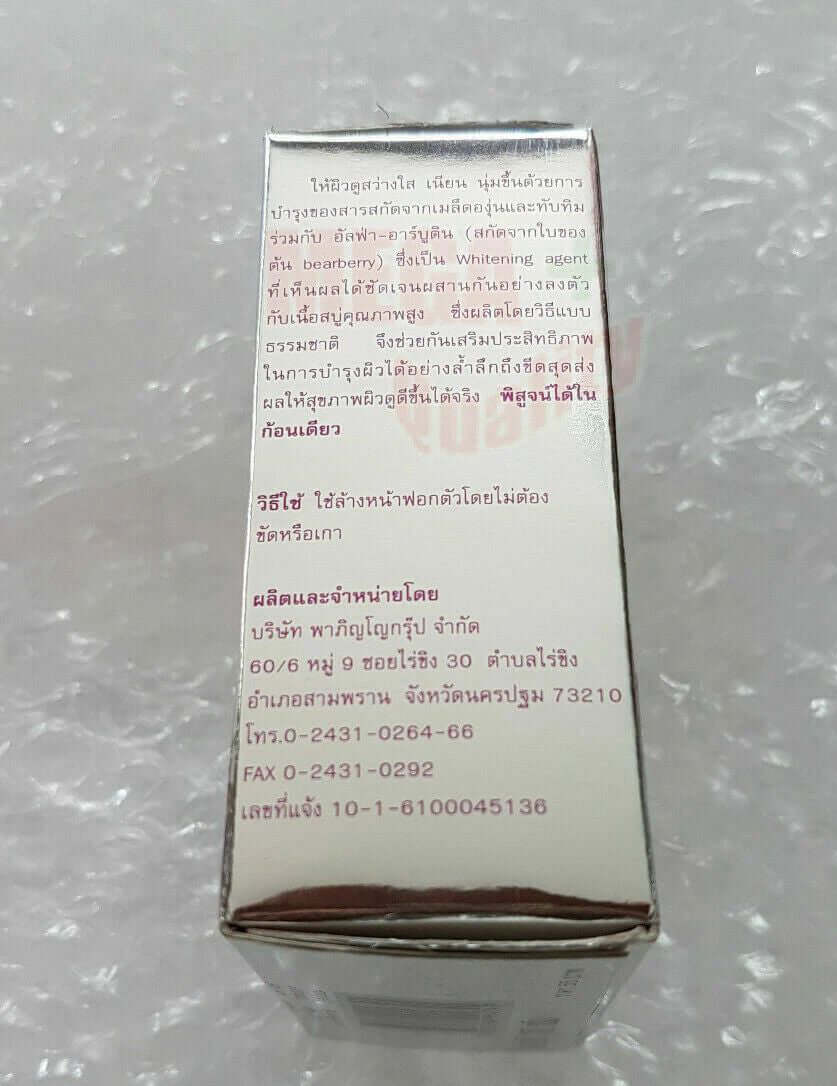 ให้ผิวดูสว่างใส เนียน นุ่มขึ้นด้วยการ
บำรุงของสารสกัดจากเมล็ดองุ่นและทับทิม
ร่วมกับ อัลฟ่า-อาร์บูติน (สกัดจากใบของ
ต้น bearberry) ซึ่งเป็น Whitening agent
ที่เห็นผลได้ชัดเจนผสานกันอย่างลงตัว
กับเนื้อสบู่คุณภาพสูง ซึ่งผลิตโดยวิธีแบบ
ธรรมชาติ จึงช่วยกันเสริมประสิทธิภาพ
ในการบำรุงผิวได้อย่างล้ำลึกถึงขีดสุดส่ง
ผลให้สุขภาพผิวดูดีขึ้นได้จริง พิสูจน์ได้ใน
ก้อนเดียว
วิธีใช้ ใช้ล้างหน้าฟอกตัวโดยไม่ต้อง
ขัดหรือเกา
ผลิตและจำหน่ายโดย
บริษัท พาภิญโญกรุ๊ป จำกัด
60/6 หมู่ 9 ซอยไร่ขิง 30 ตำบลไร่ขิง
อำเภอสามพราน จังหวัดนครปฐม 73210
โทร.0-2431-0264-66
FAX 0-2431-0292
เลขที่แจ้ง 10-1-6100045136